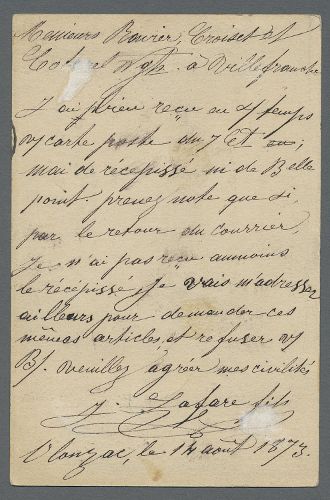 Messieurs Rouvier, Croiset et
à Villefranche
J'ai bien reçu en temps
v/ carte poste du 7 ct
mai de récépissé ni de Belle
point. prenez note que si,
par le retour du courrier,
Je n'ai pas reçu au moins
le récépissé, Je vais m'adresser
ailleurs pour demander ces
mêmes articles, et refuser v/
B/. veuillez agréer mes civilités
J. Lafare fils
le 14 août 1873.